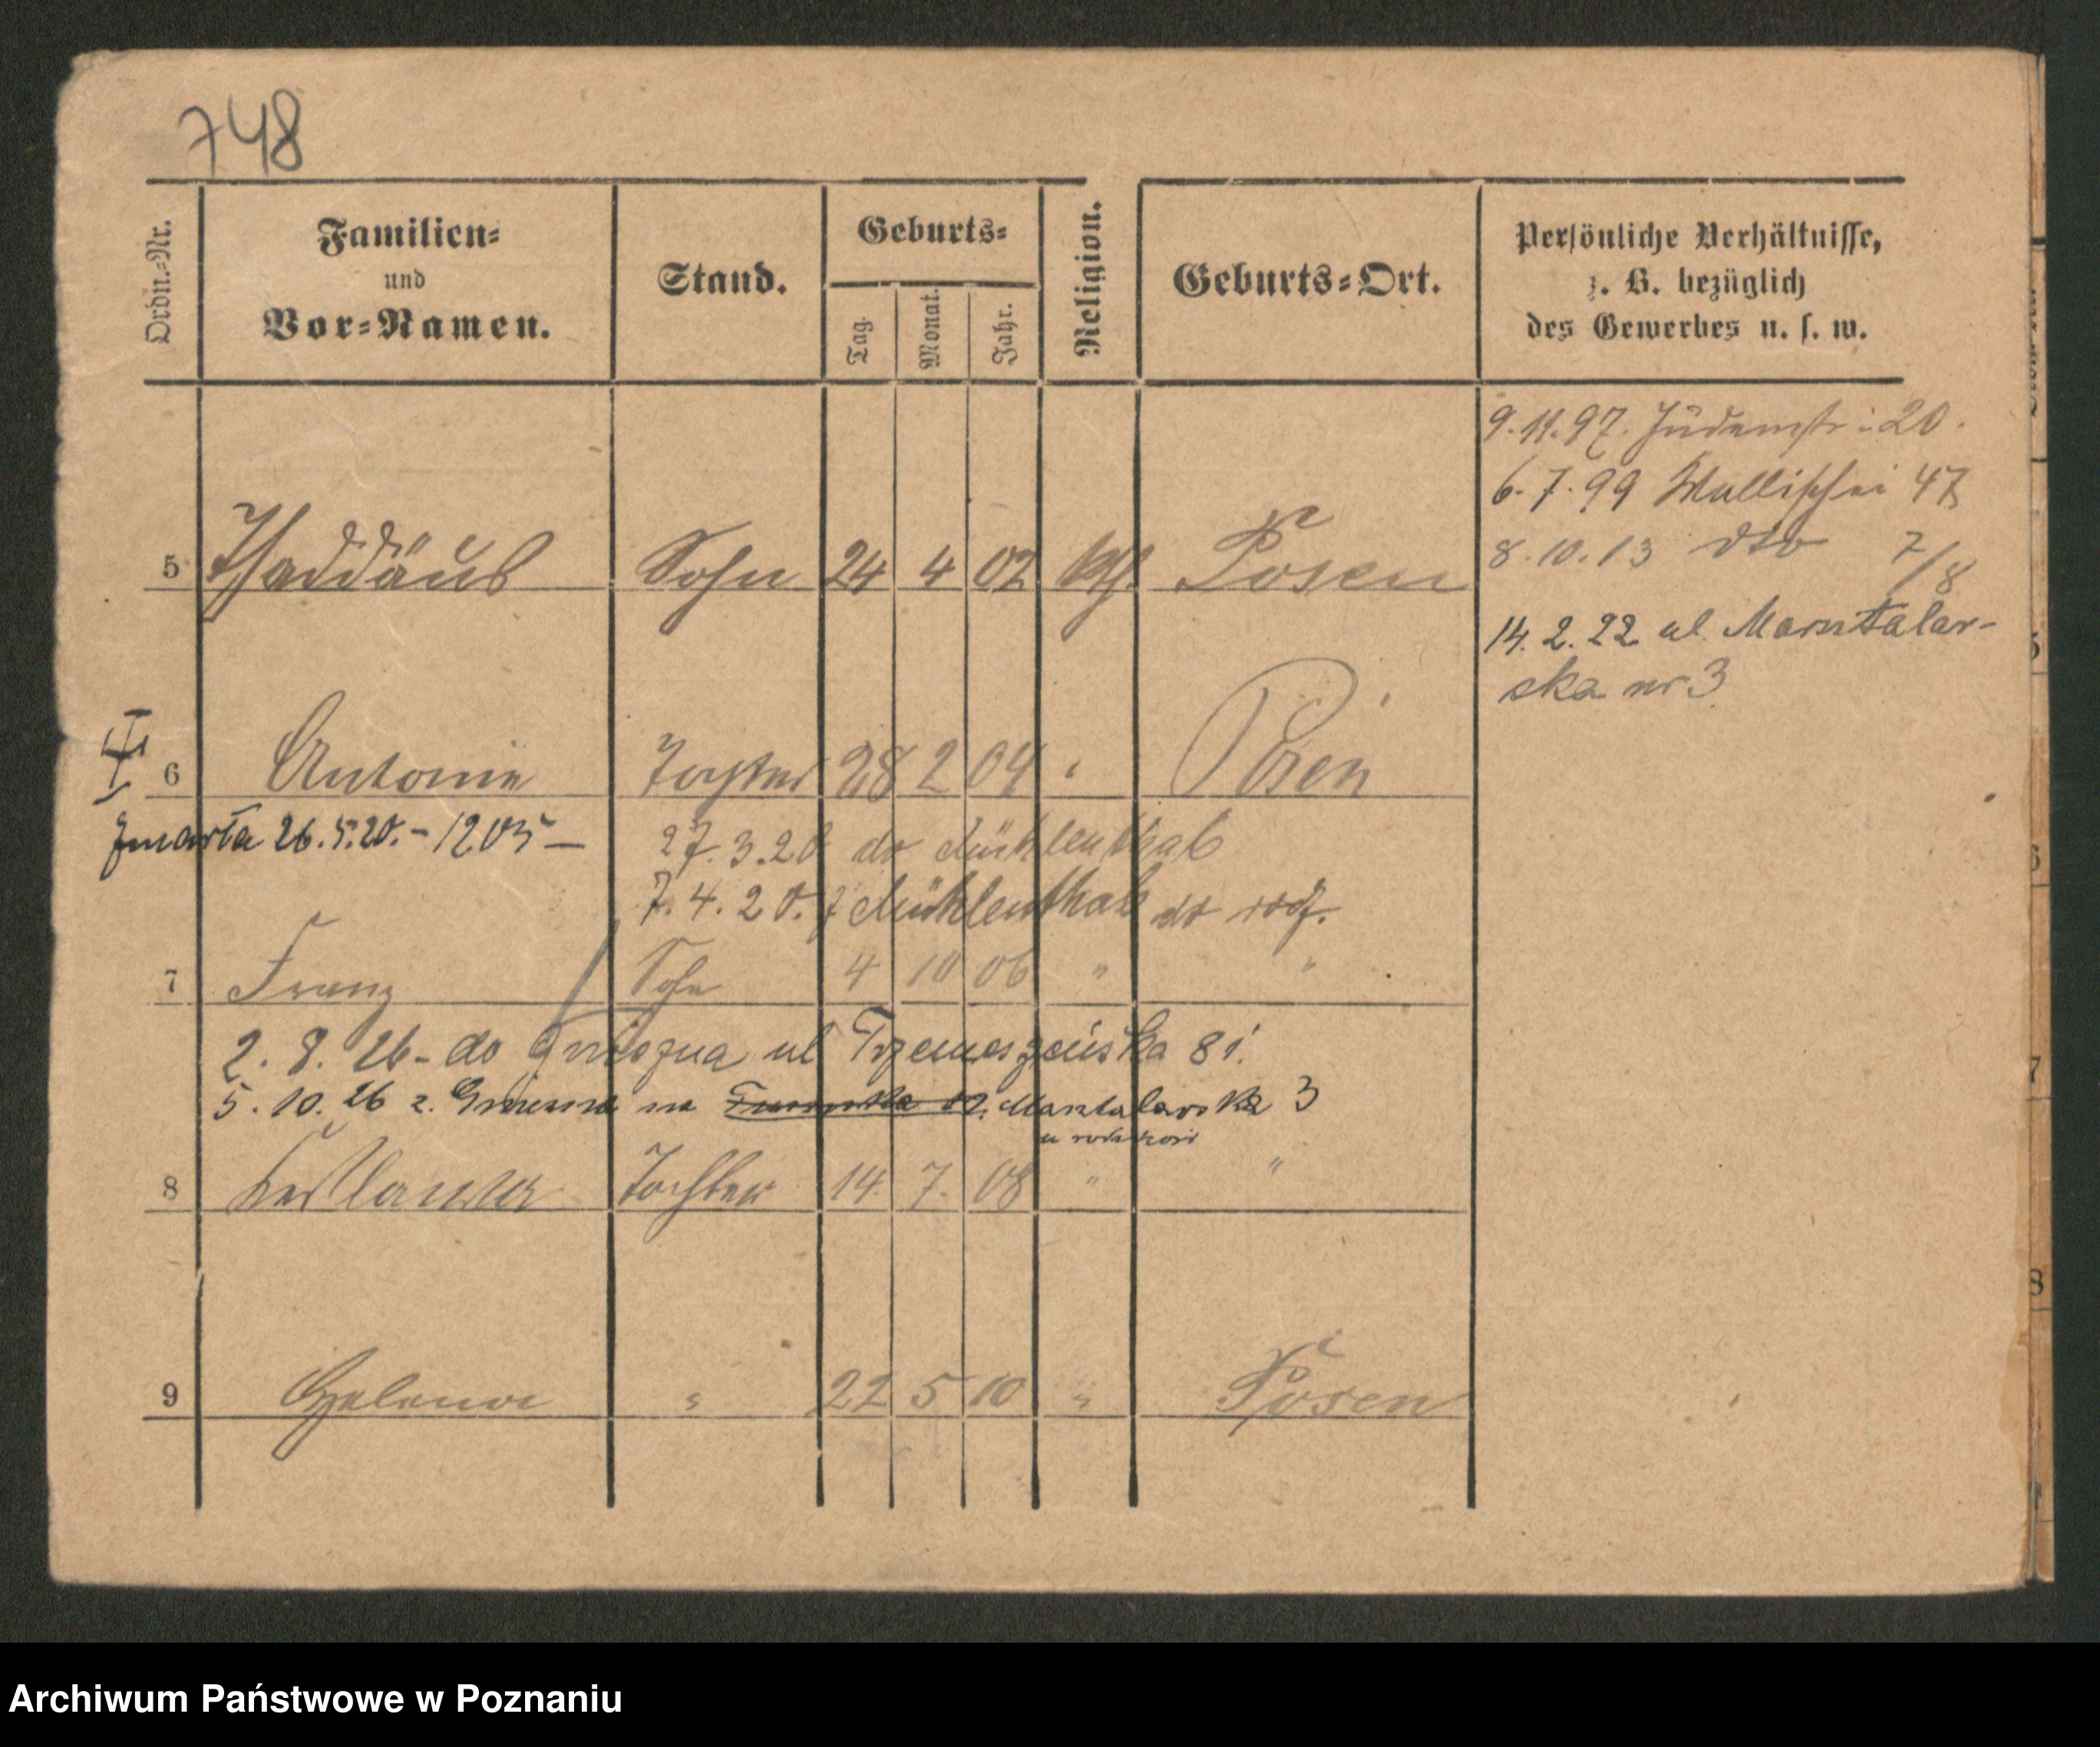 748
Ordn.-Nr.
Familien-
und
Vor-Namen.
Stand.
Geburts-
Tag.
Monat.
Jahr.
Religion.
Geburts-Ort.
Persönliche Verhältnisse,
z. B. bezüglich
des Gewerbes u. s. w.
9.11.97. Judenstr. 20.
6.7.99 Wallischei 47
8.10.13 dto 7/8
14.2.22 ul. Masztalar-
ska nr 3
5 Thaddäus Sohn 24 4 02 kth. Posen
6 Antonie Tochter 28 2 04 " Posen
Zmarła 26.5.20. - 1203 -
27.3.20 do Mühlenthal
7.4.20. z Mühlenthal do rodz.
7 Franz Sohn 4 10 06 " "
2. 8. 26 - do Gniezna ul Trzemeszeńska 81.
5. 10. 26 z. Gniezna na Masztalarska 3
u rodziców
8 Tochter 14. 7. 08 " "
9 Helena " 22 5 10 " Posen
Archiwum Państwowe w Poznaniu